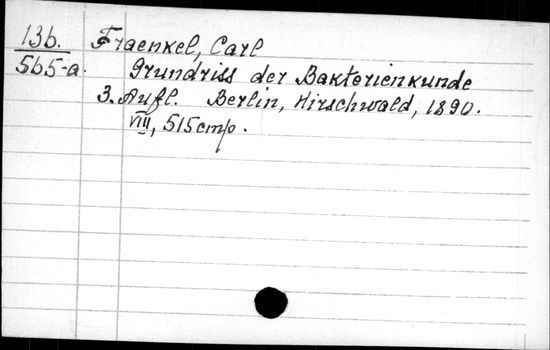 13b. Fraenkel, Carl
565-a. Grundriss der Bakterienkunde
3. Aufl. Berlin, Hirschwald, 1890.
VIII, 515 стр.